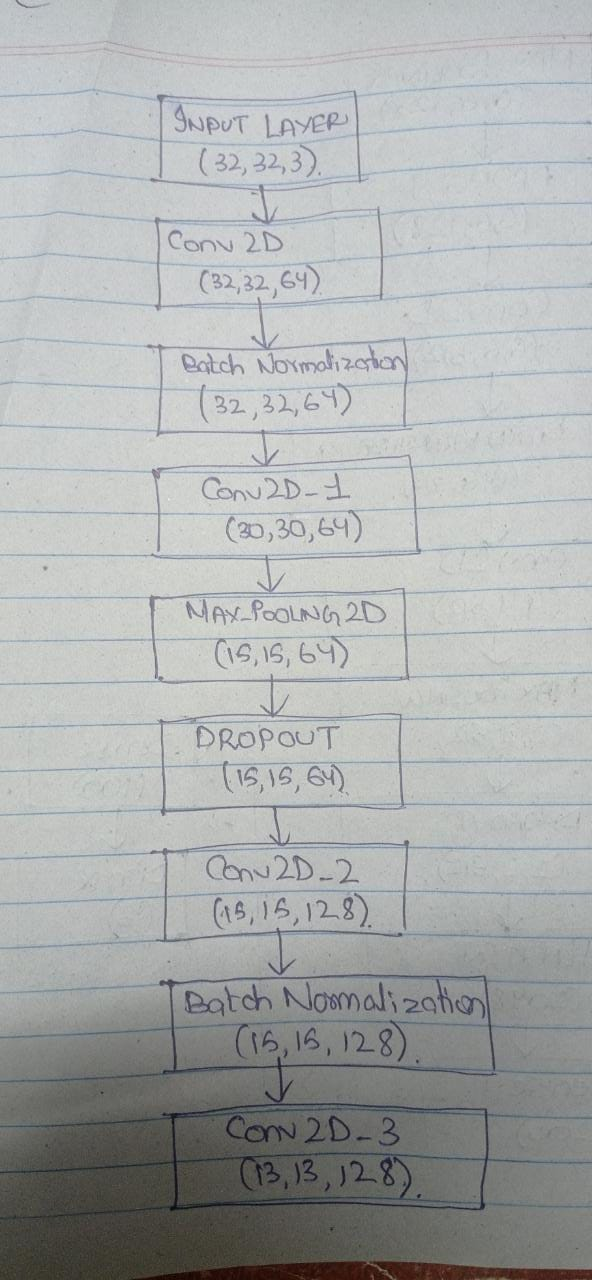 INPUT LAYER
(32,32,3).
Conv 2D
(32,32,64).
Batch Normalization
(32,32,64)
Conv2D-1
(30,30,64)
MAX-POOLNG2D
(15,15,64)
DROPOUT
(15,15,64).
Conv2D-2
(15,15,128).
Batch Normalization
(15,15,128).
Conv2D-3
(13,13,128).